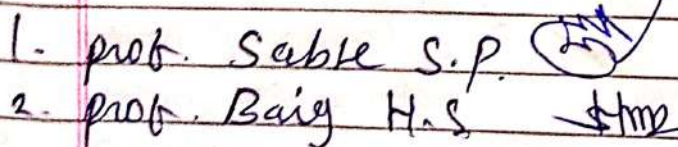 1. prof. Sable S.P.
2. prof. Baig H.S